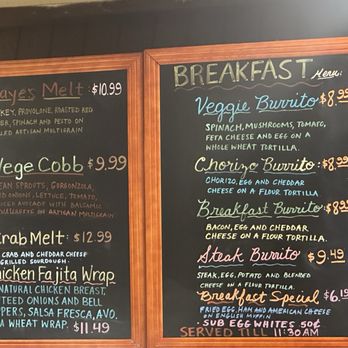 ayes Melt: $10.99
KEY, PROVOLONE, ROASTED RED
ER, SPINACH AND PESTO ON
LLED ARTISAN MULTIGRAIN
Vege Cobb $9.99
EAN SPROUTS, GORGONZOLA,
ED ONIONS, LETTUCE, TOMATO,
AVOCADO WITH BALSAMIC
ON ARTISAN MULTIGRAIN
Crab Melt: $12.99
CRAB AND CHEDDAR CHEESE
GRILLED SOURDOUGH.
hicken Fajita Wrap
NATURAL CHICKEN BREAST,
TEED ONIONS AND BELL
PERS, SALSA FRESCA, AVO.
A WHEAT WRAP. $11.49
BREAKFAST Menu:
Veggie Burrito $8.99
SPINACH, MUSHROOMS, TOMATO,
FETA CHEESE AND EGG ON A
WHOLE WHEAT TORTILLA.
Chorizo Burrito: $8.99
CHORIZO, EGG AND CHEDDAR
CHEESE ON A FLOUR TORTILLA
Breakfast Burrito $8.99
BACON, EGG AND CHEDDAR
CHEESE ON A FLOUR TORTILLA.
Steak Burrito $9.49
STEAK, EGG, POTATO AND BLENDED
CHEESE ON A FLOUR TORTILLA.
Breakfast Special $6.
FRIED EGG, HAM AND AMERICAN CHEESE
ON ENGLISH MUFFIN
- SUB EGG WHITES 50¢
SERVED TILL 11:30AM